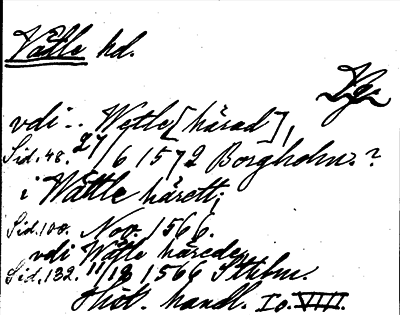 Vättle hd.
Vg.
vdi -. Wetle [härad],
Sid. 48. 27/6 1572 Borgholm. ?
i Wättle härett;
Sid. 100. Nov. 1566.
vdi Wätle härede
Sid. 132. 11/12 1566 Sthlm.
Skök. handl. 10. VIII.